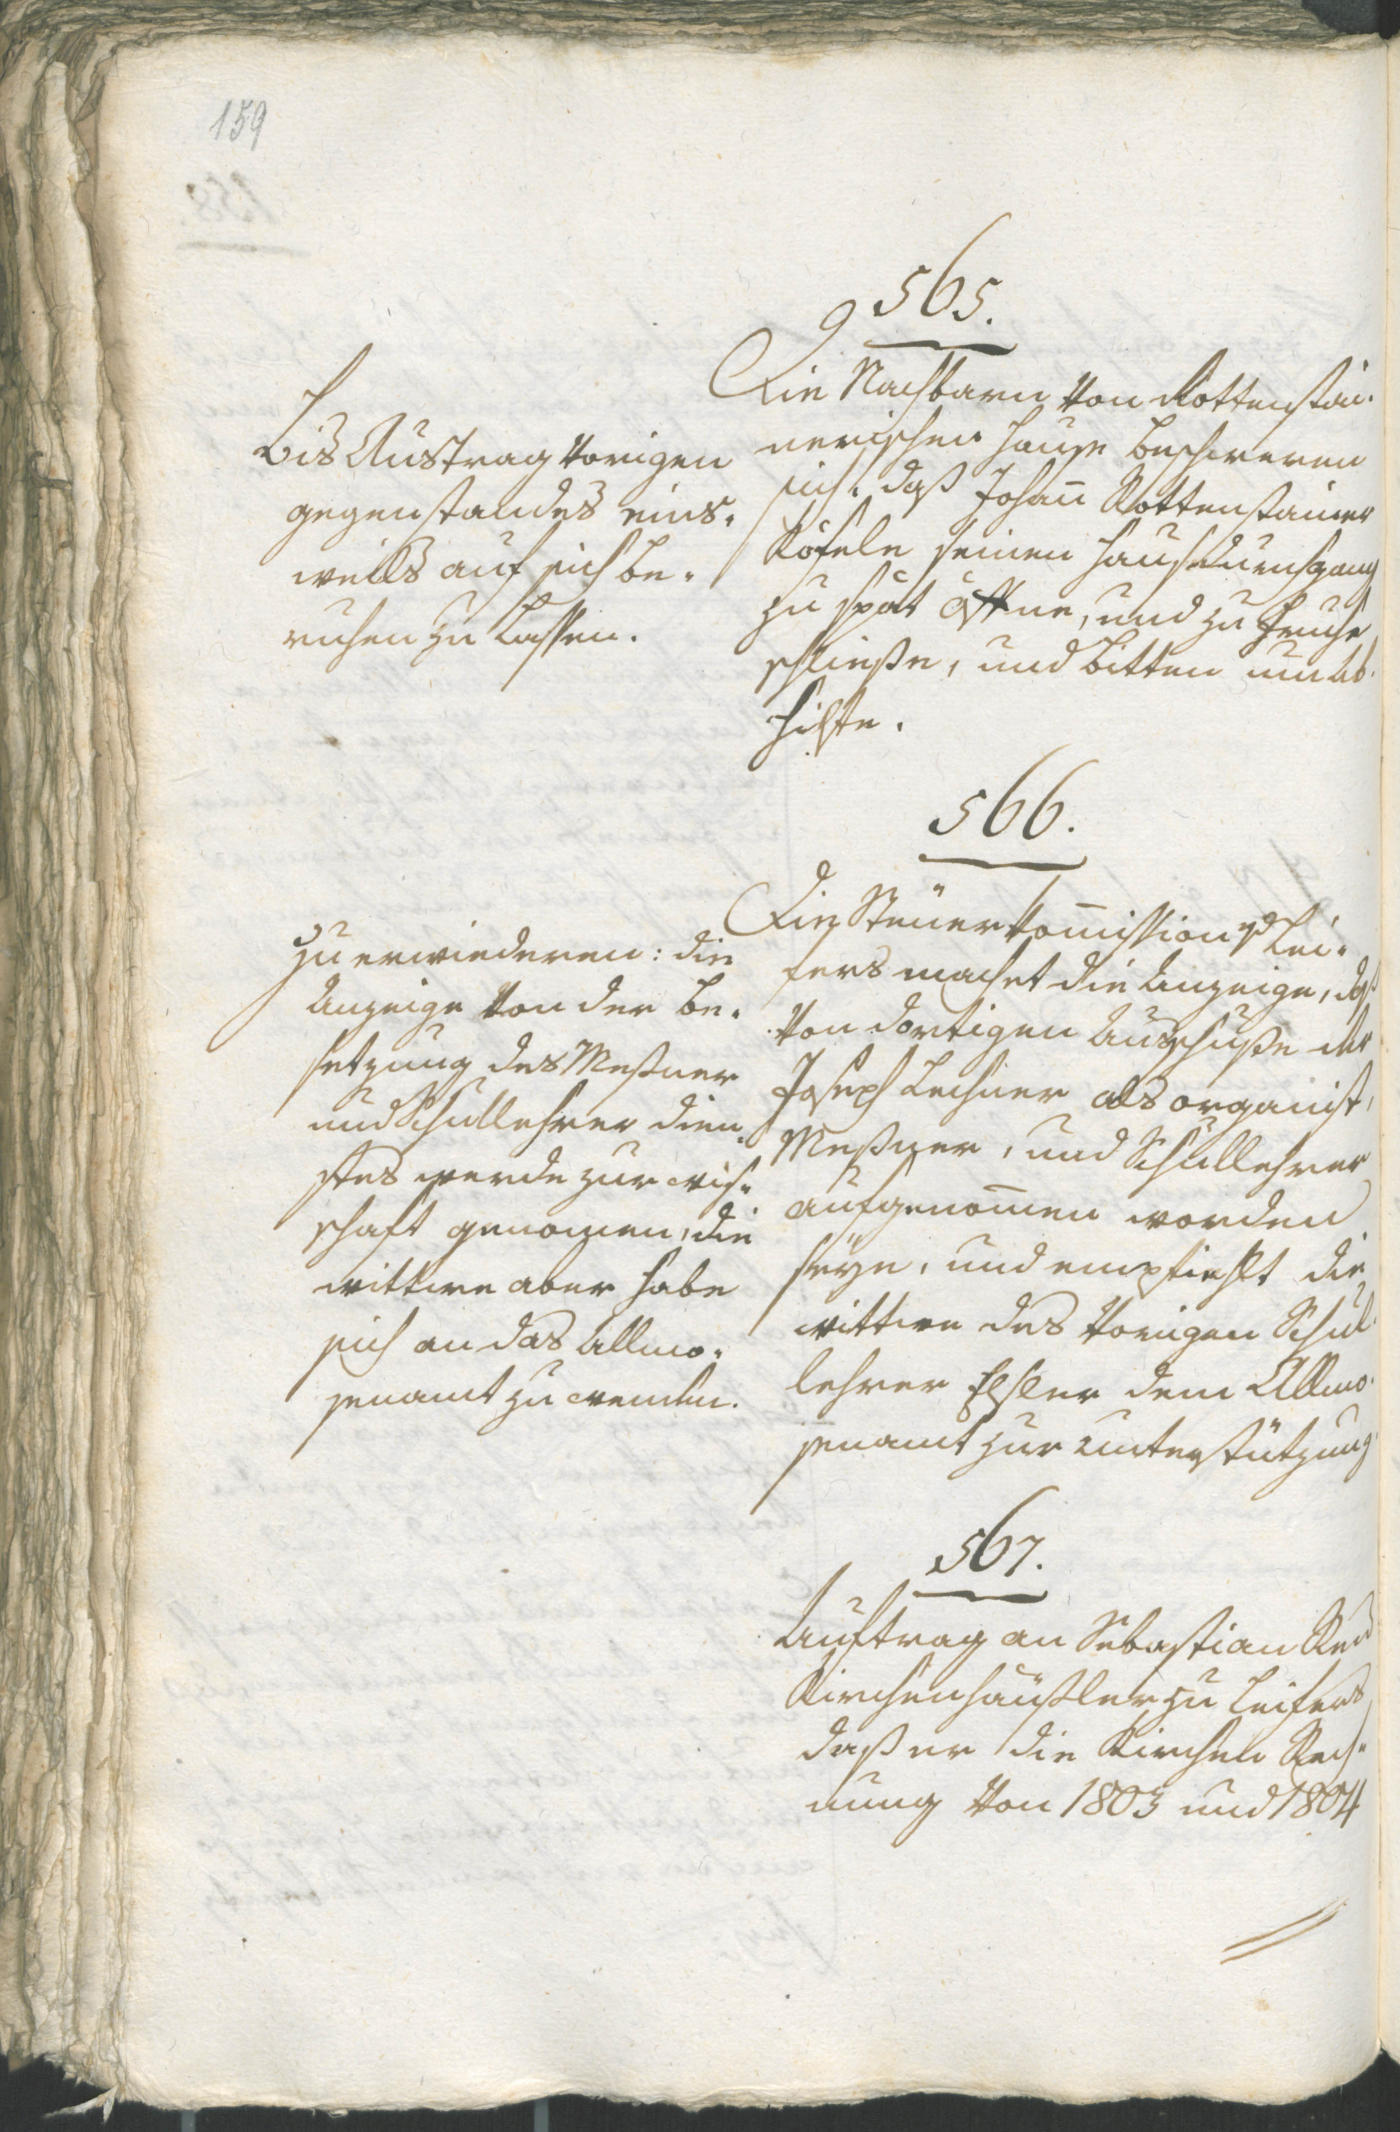 159
565.
Die Nachbarn von Rottenstai-
nerischen Hause beschweren
sich, daß Johann Rottenstainer
Köfele seinen Hausdurchgang
zu spät öffne, und zu Fruhe
schließe, und bitten um Ab-
hilfe.
Bis Austrag vorigen
gegenstandes eins-
weils auf sich be-
ruhen zu lassen.
566.
Die Steuer Kommission zu Lei-
fers machet die Anzeige, daß
von dortigen Ausschuße der
Joseph Lechner als organist,
Meßner, und Schullehrer
aufgenommen worden
seye, und empfiehlt die
wittwe des vorigen Schul-
lehrer dem Allmo-
senamt zur unterstützung.
Zu erwiederen: die
Anzeige von der Be-
setzung des Meßner
und Schullehrer dien-
stes werde zur wis-
schaft genomen, die
wittwe aber habe
sich an das Allmo-
senamt zu wenden.
567.
Auftrag an Sebastian
Kirchenhäußler zu Leifers
daß er die Kirchen Rech-
nung von 1803 und 1804